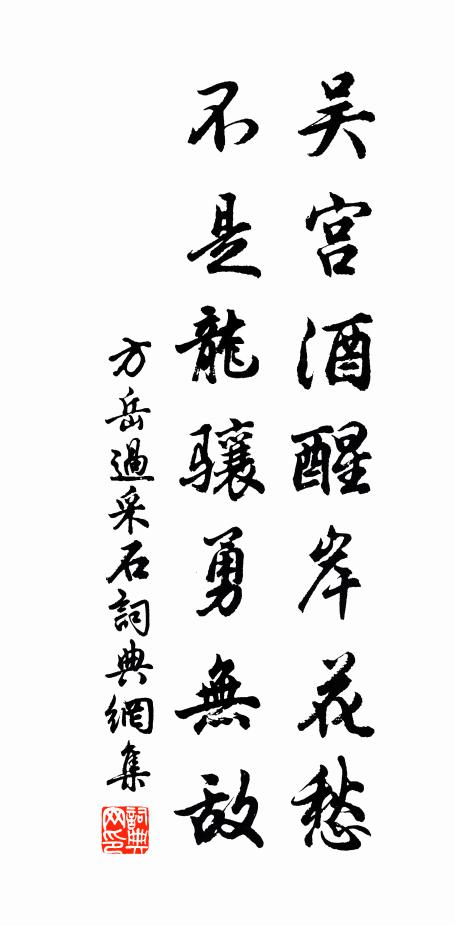 吴宫酒醒岸花愁
不是龍骧勇無敌
方岳過采石詞典網集
詞典网印